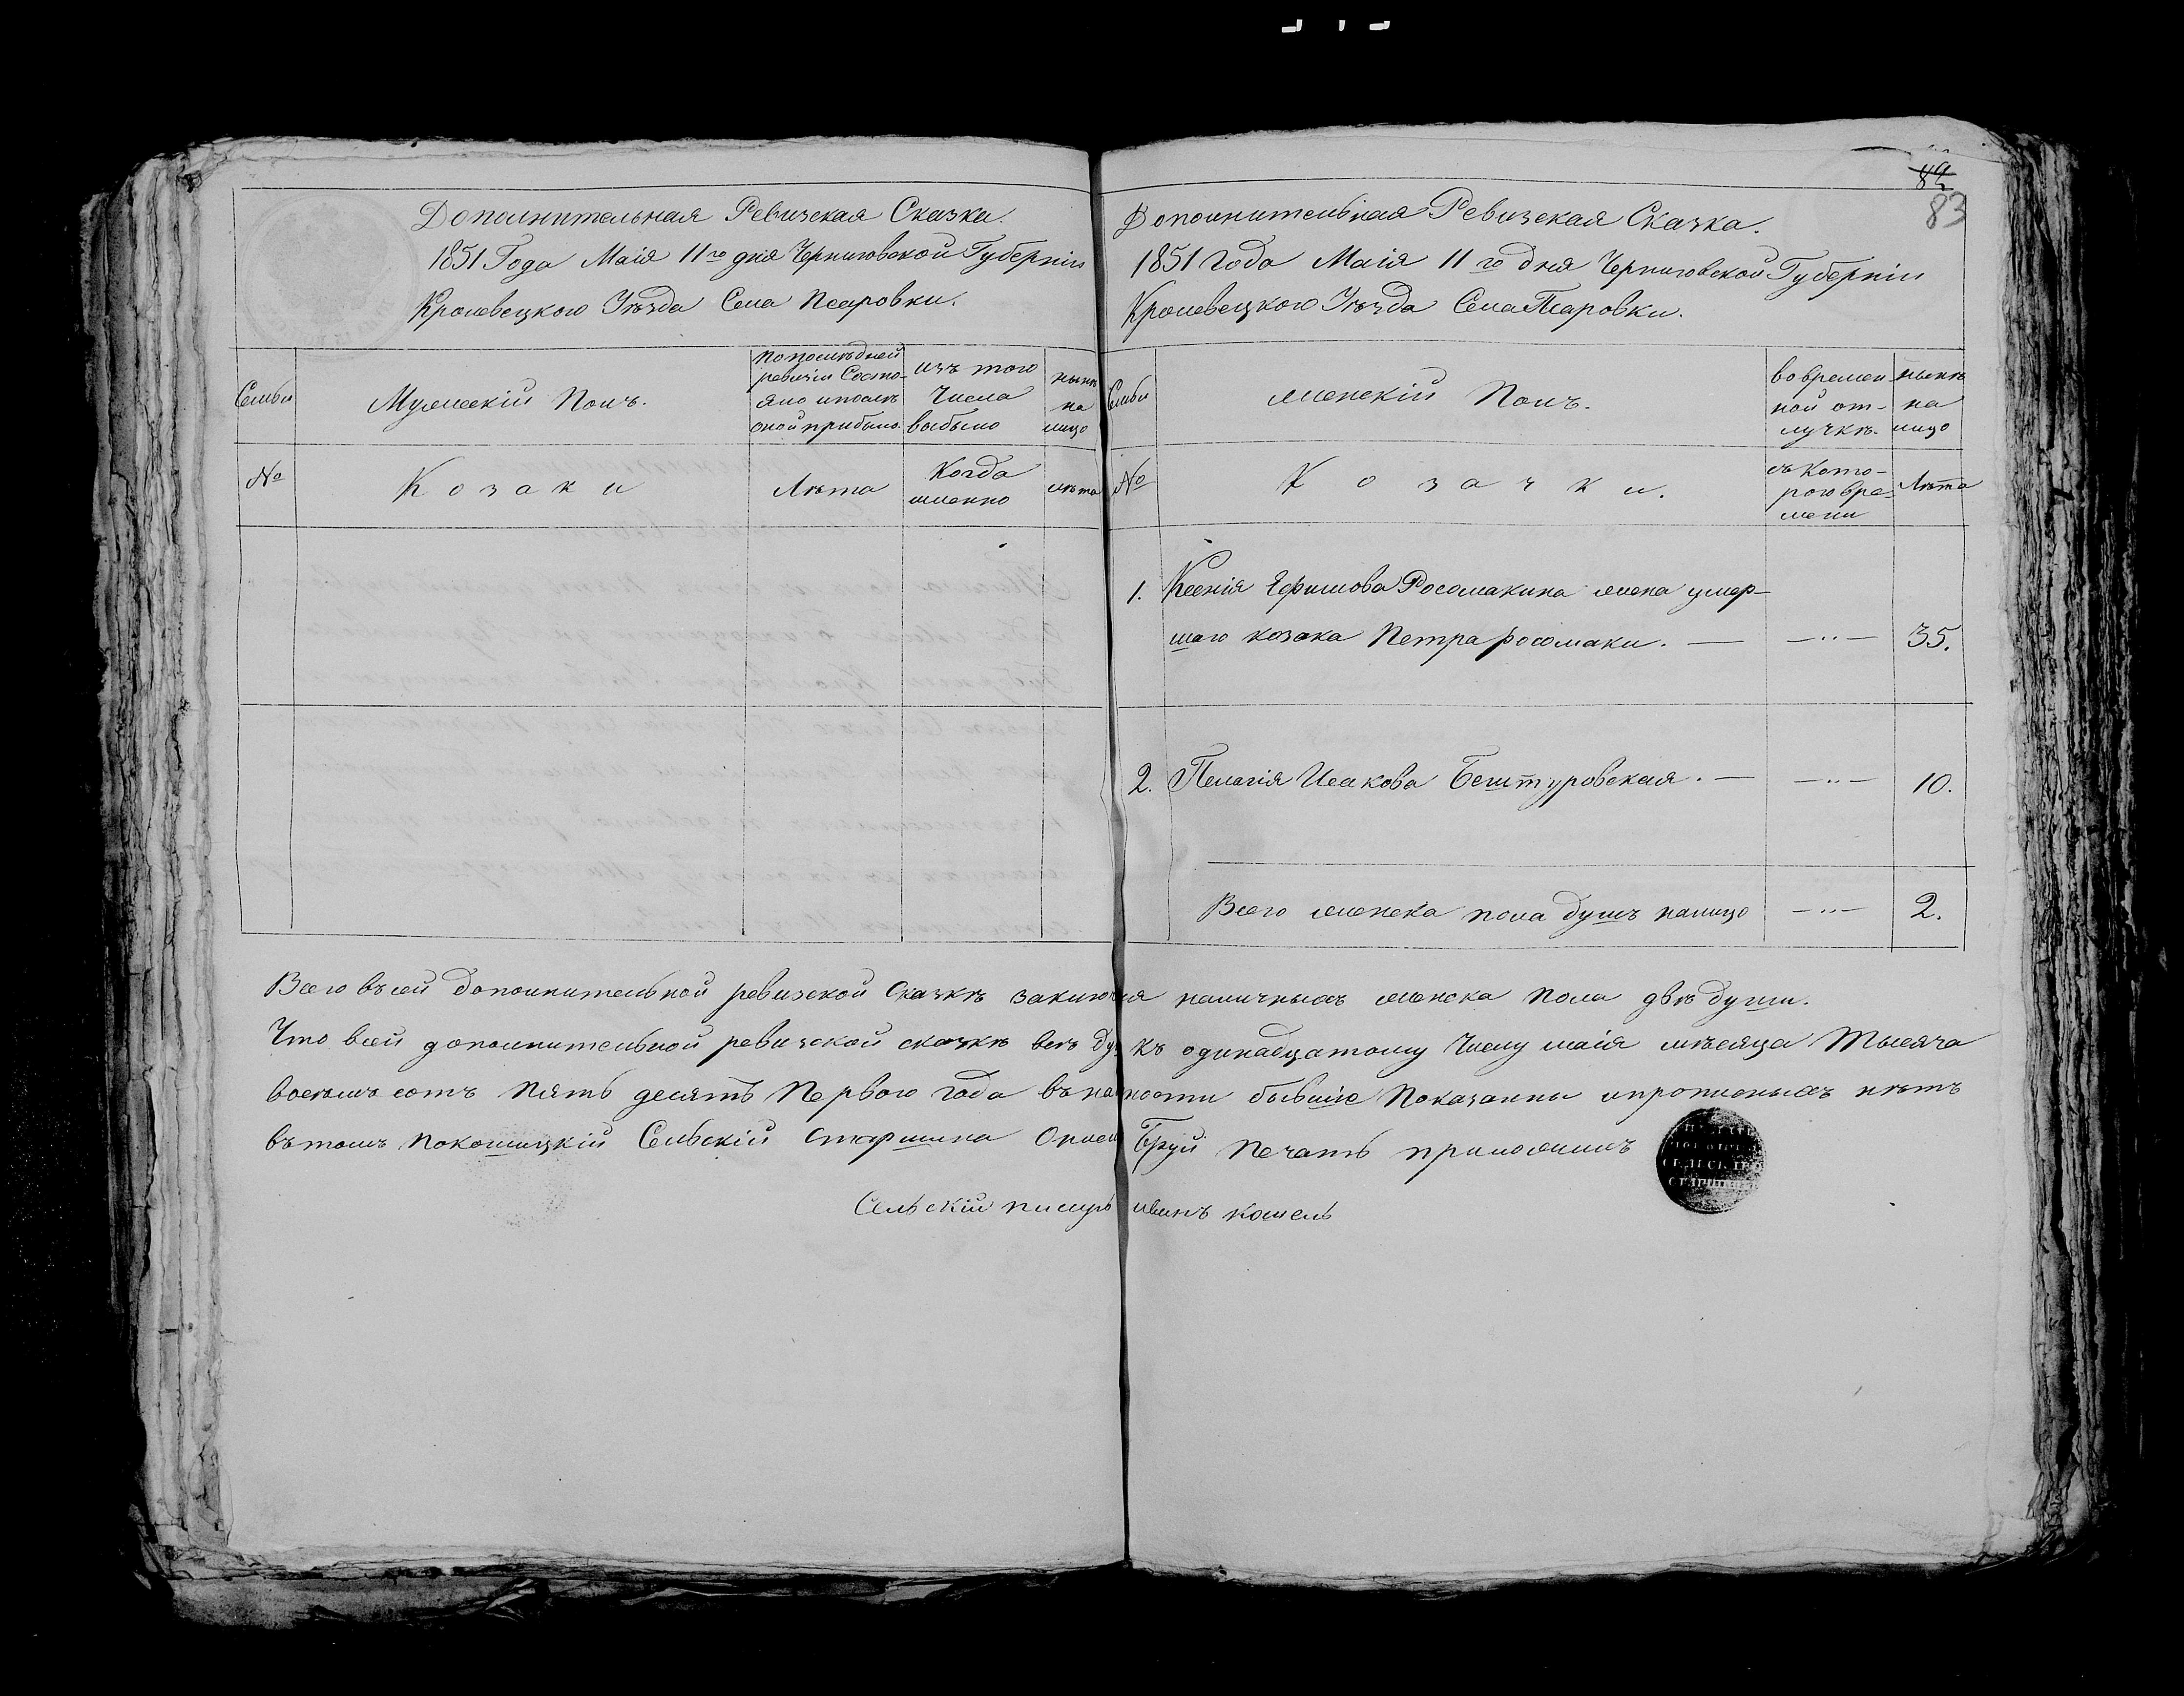 Дополнительная Ревизская Сказка.
1851 Года Маія 11го дня Черниговской Губерніи
Кролевецкого Уѣзда Села Псаровки.
Семьи
Мужескій Полъ.
по послѣдней
ревизіи Состо-
яло и послѣ
оной прибыло.
изъ того
Числа
выбыло
нынѣ
на
лицо
№
Козаки
Лѣта
Когда
именно
лѣта
83
Дополнительная Ревизская Сказка.
1851 Года Маія 11го дня Черниговской Губерніи
Кролевецкого Уѣзда Села Псаровки.
Семьи
женскій Полъ.
во времен
ной от-
лучкѣ.
нынѣ
на
лицо
№
Козачки.
съ Кото-
рого вре-
мени
Лѣта
1. Ксенія Ефимова Росомакина жена умер-
шаго козака Петра Росомаки. — —"— 35.
2. Пелагія Исакова Бештуровская. — —"— 10.
Всего женска пола душъ налицо —"— 2.
Всего въ сей дополнительной ревизской Сказкѣ заключ наличныхъ женска пола двѣ души.
Что всей дополнительной ревизской сказкѣ всѣ ду къ одинадцатому Числу маія мѣсяца Тысяча
восемъ сотъ пять десятъ Первого года въ на ности бывшіе Показанны и прописныхъ нѣтъ
въ томъ Покошицкій Сельскій старшина Бруй Печать приложилъ
Сельскій писарь иванъ кошель